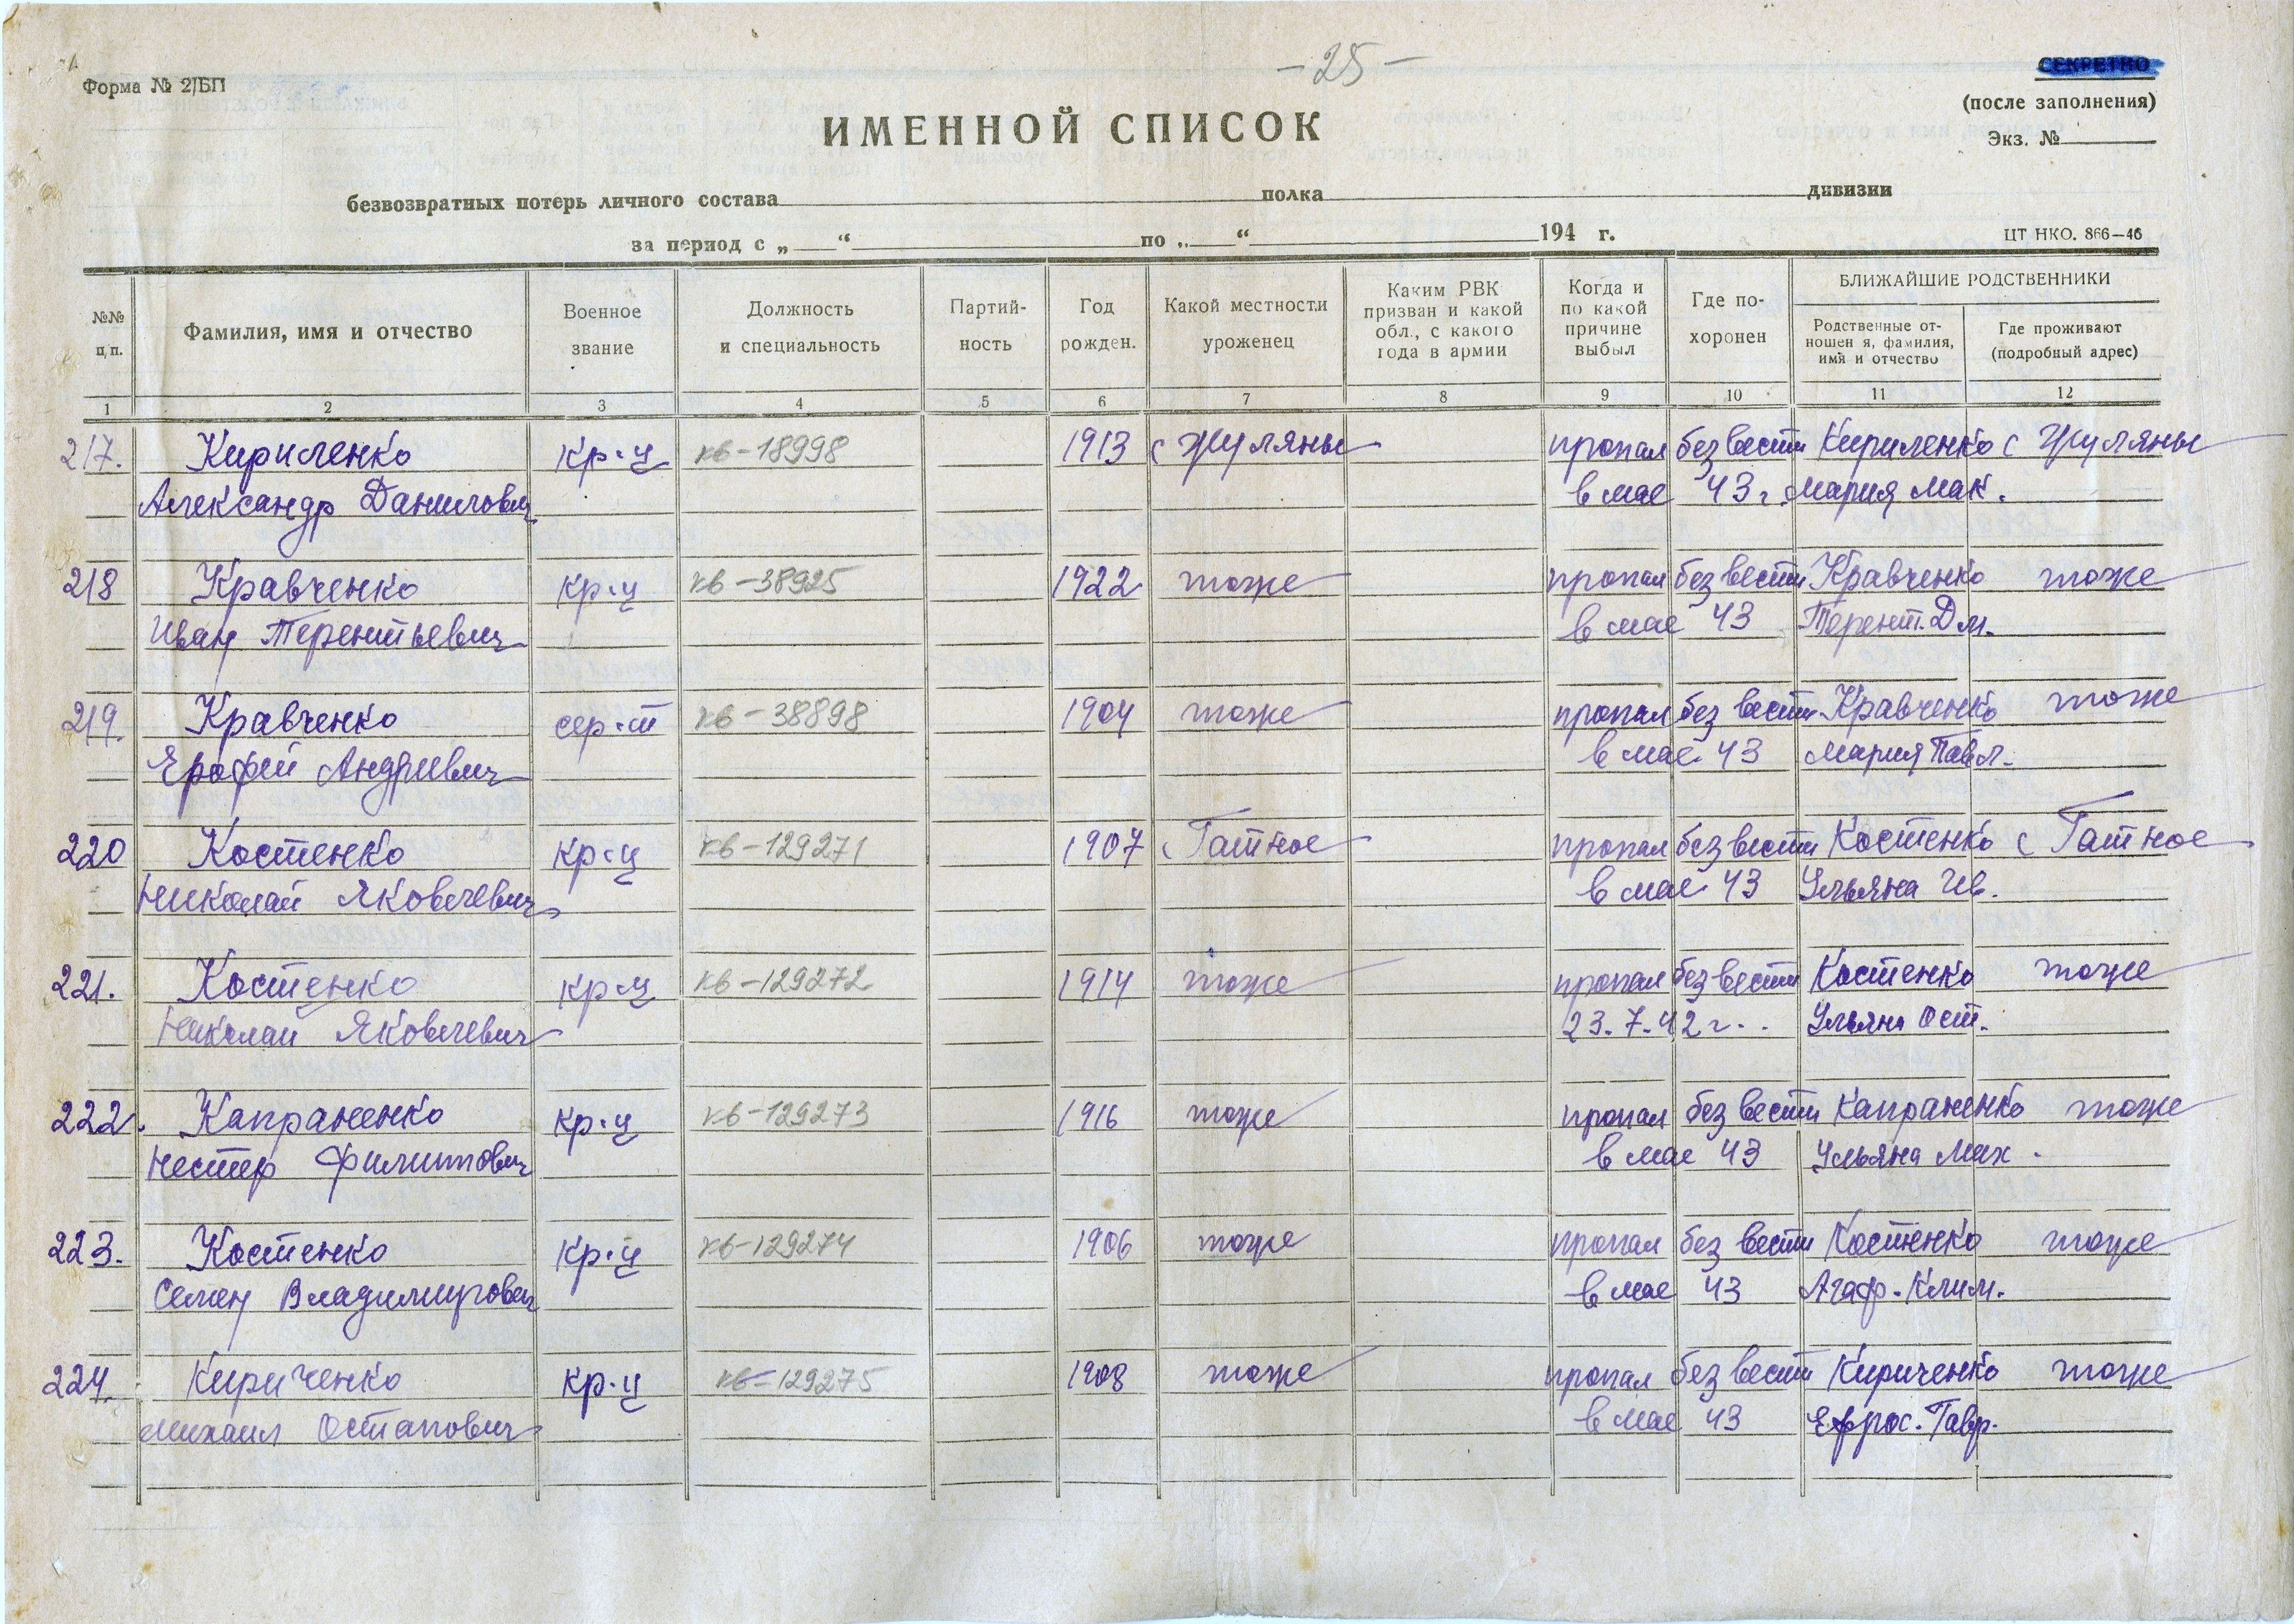 - 25 -
Форма № 2/БП
СЕКРЕТНО
(после заполнения)
Экз. №
ИМЕННОЙ СПИСОК
безвозвратных потерь личного состава полка дивизии
за период с „ “ по „ “ 194 г.
ЦТ НКО. 866—46
№№ п/п.
Фамилия, имя и отчество
Военное звание
Должность и специальность
Партий-ность
Год рожден.
Какой местности уроженец
Каким РВК призван и какой обл., с какого года в армии
Когда и по какой причине выбыл
Где по-хоронен
БЛИЖАЙШИЕ РОДСТВЕННИКИ
Родственные от-ношен я, фамилия, имя и отчество
Где проживают (подробный адрес)
1 2 3 4 5 6 7 8 9 10 11 12
217. Кириленко кр-ц кв-18998 1913 с Жуляны пропал без вести Кириленко с Жуляны
Александр Данилович в мае 43 г. Мария Мак.
218 Кравченко кр-ц кв-38925 1922 тоже пропал без вести Кравченко тоже
Иван Терентьевич в мае 43 Терент. Дм.
219. Кравченко сер-т кв-38898 1904 тоже пропал без вести Кравченко тоже
Ерофей Андреевич в мае 43 Мария Павл.
220 Костенко кр-ц кв-129271 1907 с Гатное пропал без вести Костенко с Гатное
Николай Яковлевич в мае 43 Ульяна Ив.
221. Костенко кр-ц кв-129272 1914 тоже пропал без вести Костенко тоже
Николай Яковлевич 23.7.42 г. Ульяна Ост.
222. Капраненко кр-ц кв-129273 1916 тоже пропал без вести Капраненко тоже
Нестер Филиппович в мае 43 Ульяна Мих.
223. Костенко кр-ц кв-129274 1906 тоже пропал без вести Костенко тоже
Семен Владимирович в мае 43 Агаф. Клим.
224. Кириченко кр-ц кв-129275 1908 тоже пропал без вести Кириченко тоже
Михаил Остапович в мае 43 Ефрос. Гавр.